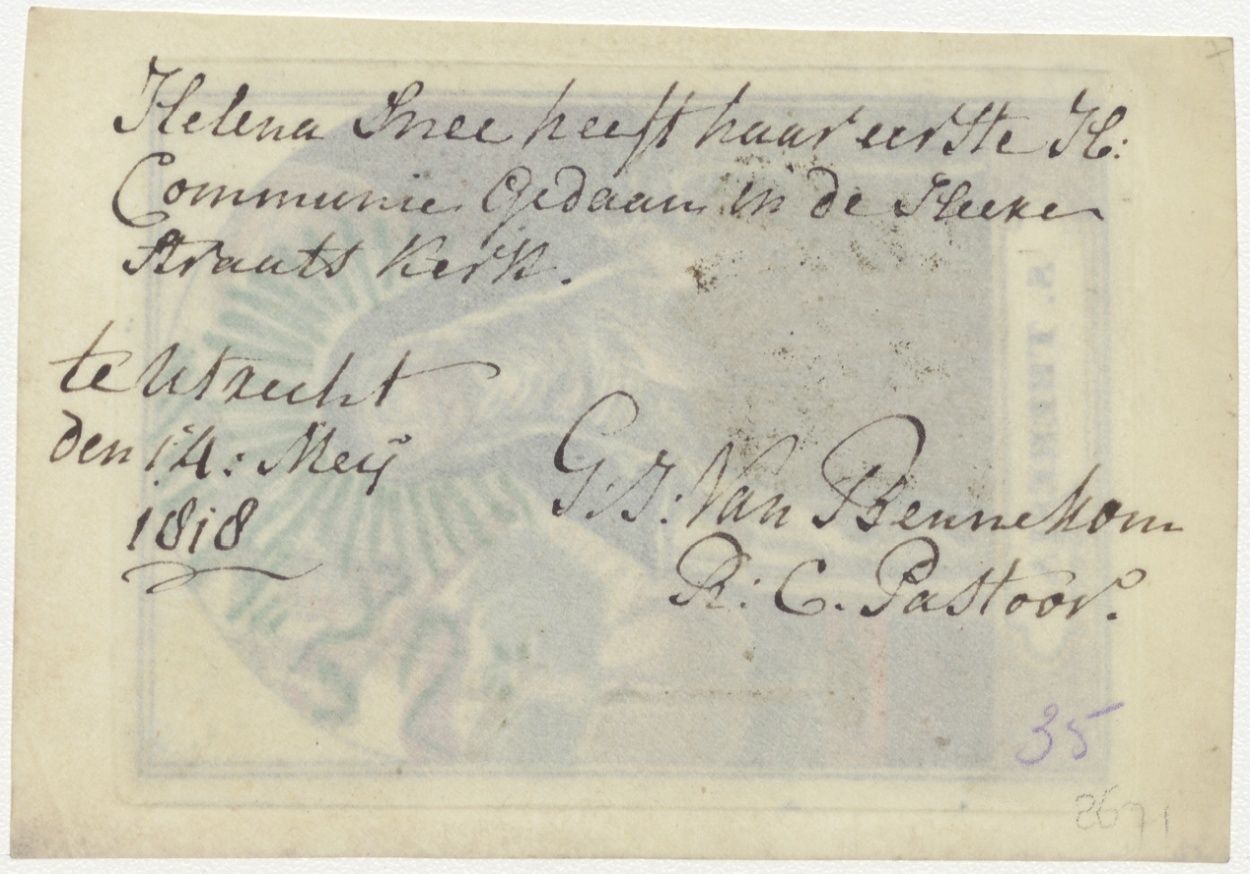 Helena Snee heeft haar eerste H:
Communie Gedaan in de Heere
straats Kerk.
te Utrecht
den 14: Meij
1818
G: J: Van Bennekom
R: C. Pastoor.
35
2671